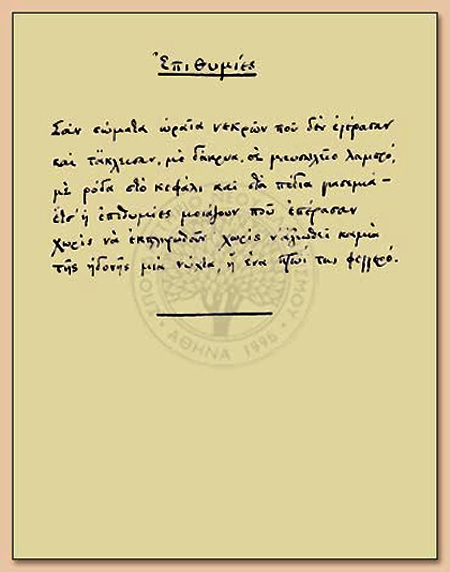 Ἐπιθυμίες
Σὰν σώματα ὡραῖα νεκρῶν ποῦ δὲν ἐγέρασαν
καὶ τἄκλεισαν, μὲ δάκρυα, σὲ μαυσωλεῖο λαμπρό,
μὲ ρόδα στὸ κεφάλι καὶ στὰ πόδια γιασεμιὰ —
ἔτσ' ἡ ἐπιθυμίες μοιάζουν ποῦ ἐπέρασαν
χωρὶς νὰ ἐκπληρωθοῦν· χωρὶς ν' ἀξιωθεῖ καμιὰ
τῆς ἡδονῆς μιὰ νύχτα, ἢ ἕνα πρωΐ της φεγγερό.
ΑΘΗΝΑ 1996